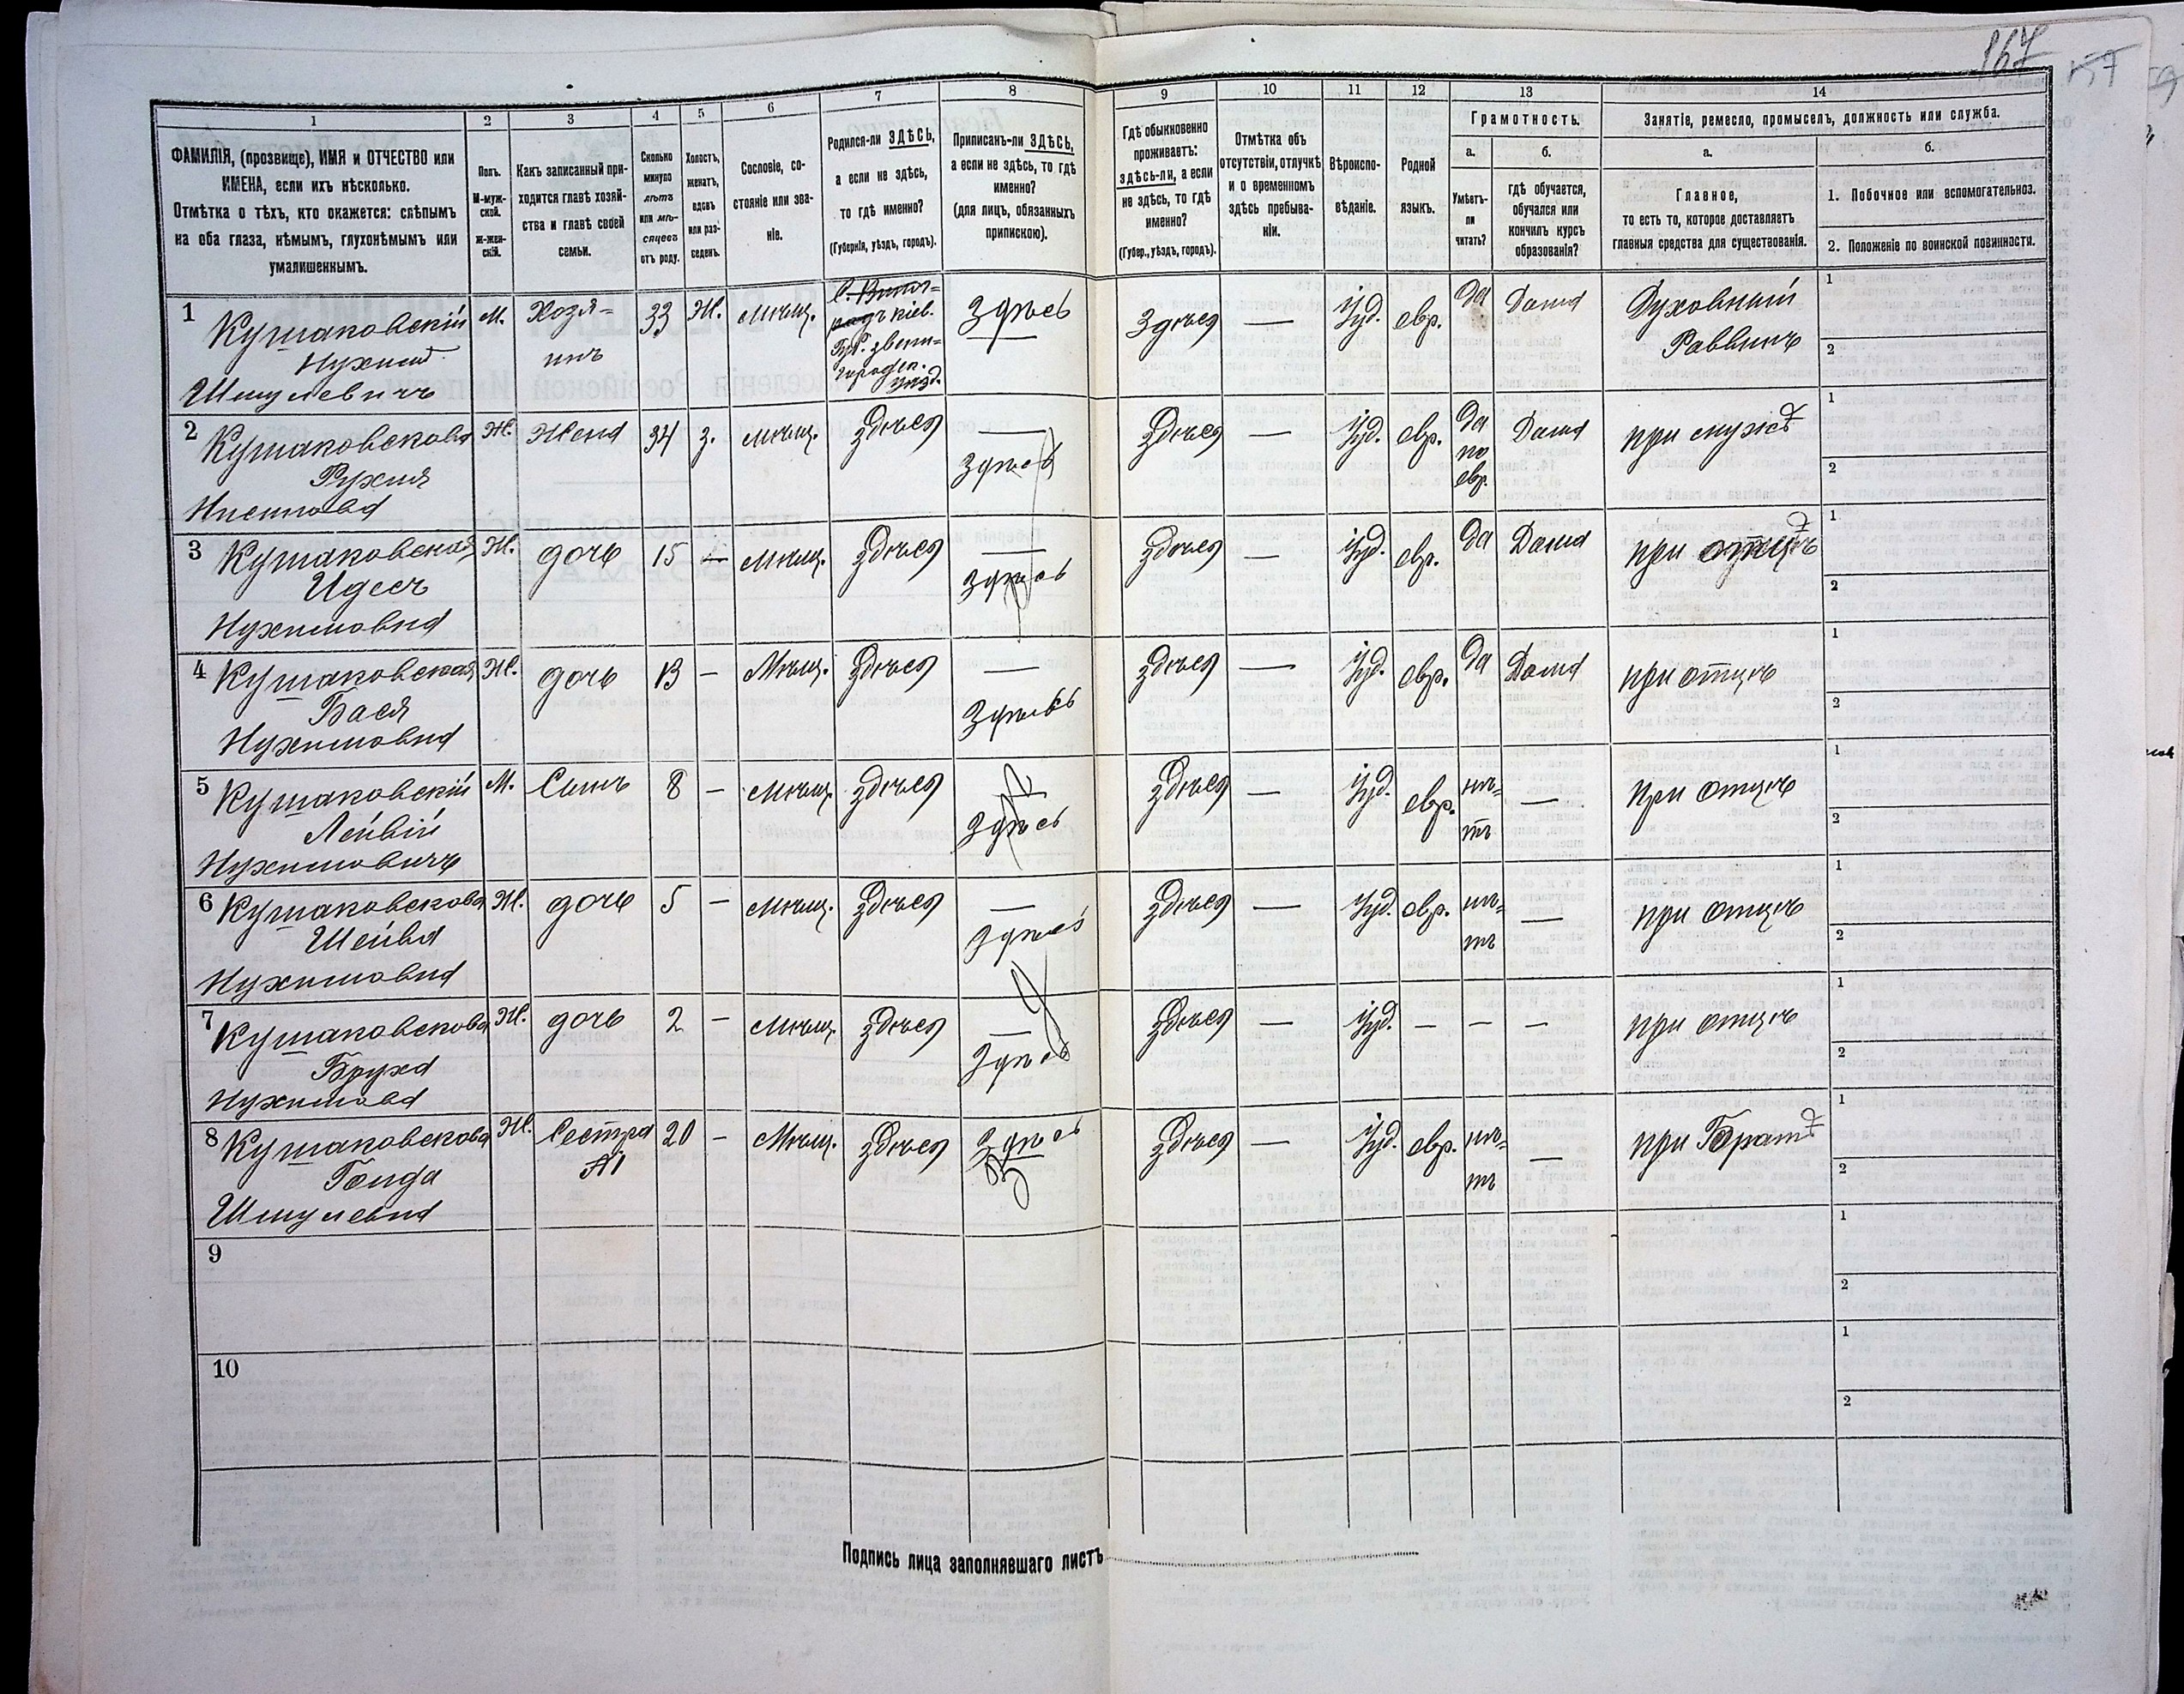 167
1
2
3
4
5
6
7
8
9
10
11
12
13
14
ФАМИЛІЯ, (прозвище), ИМЯ и ОТЧЕСТВО или
ИМЕНА, если ихъ нѣсколько.
Отмѣтка о тѣхъ, кто окажется: слѣпымъ
на оба глаза, нѣмымъ, глухонѣмымъ или
умалишеннымъ.
Полъ.
М-муж-
ской.
ж-жен-
скій.
Какъ записанный при-
ходится главѣ хозяй-
ства и главѣ своей
семьи.
Сколько
минуло
лѣтъ
или мѣ-
сяцевъ
отъ роду.
Холостъ,
женатъ,
вдовъ
или раз-
веденъ.
Сословіе, со-
стояніе или зва-
ніе.
Родился-ли ЗДѢСЬ,
а если не здѣсь,
то гдѣ именно?
(Губернія, уѣздъ, городъ).
Приписанъ-ли ЗДѢСЬ,
а если не здѣсь, то гдѣ
именно?
(для лицъ, обязанныхъ
припискою).
Гдѣ обыкновенно
проживаетъ:
здѣсь-ли, а если
не здѣсь, то гдѣ
именно?
(Губер., уѣздъ, городъ).
Отмѣтка объ
отсутствіи, отлучкѣ
и о временномъ
здѣсь пребыва-
ніи.
Вѣроиспо-
вѣданіе.
Родной
языкъ.
Грамотность.
а.
Умѣетъ-
ли
читать?
б.
гдѣ обучается,
обучался или
кончилъ курсъ
образованія?
Занятіе, ремесло, промыселъ, должность или служба.
а.
Главное,
то есть то, которое доставляетъ
главныя средства для существованія.
б.
1. Побочное или вспомогательное.
2. Положеніе по воинской повинности.
1 Кушаковскій М. Хозя- 33 Ж. мѣщ. кіев. Здѣсь Здѣся — Іуд. евр. да Дома Духовный 1
Нухим инъ Губ. звени- Раввинъ 2
Шмулевичъ городск. уѣзд.
2 Кушаковскова Ж. Жена 34 з. мѣщ. здѣся — Здѣся — Іуд. евр. да Дома при мужѣ 1
Рухля здѣсь по 2
евр.
3 Кушаковская Ж. дочь 15 — мѣщ. здѣся — здѣся — Іуд. евр. да Дома при отцѣ 1
Идесъ здѣсь 2
Нухимовна
4 Кушаковская Ж. дочь 13 — Мѣщ. здѣся — здѣся — Іуд. евр. да Дома при отцѣ 1
Бася Здѣсь 2
Нухимовна
5 Кушаковскій М. Сынъ 8 — мѣщ. здѣся — здѣся — Іуд. евр. нѣ= — при отцѣ 1
Лейвій здѣсь тъ 2
Нухимовичъ
6 Кушаковскова Ж. дочь 5 — мѣщ. здѣся — здѣся — Іуд. евр. нѣ= — при отцѣ 1
Шейва здѣсь тъ 2
Нухимовна
7 Кушаковскова Ж. дочь 2 — мѣщ. здѣся — здѣся — Іуд. — — — при отцѣ 1
Бруха здѣсь 2
Нухимова
8 Кушаковскова Ж. Сестра 20 — Мѣщ. здѣся Здѣсь здѣся — Іуд. евр. нѣ= — при Братѣ 1
Голда №1 тъ 2
Шмулевна
9 1
2
10 1
2
Подпись лица заполнявшаго листъ